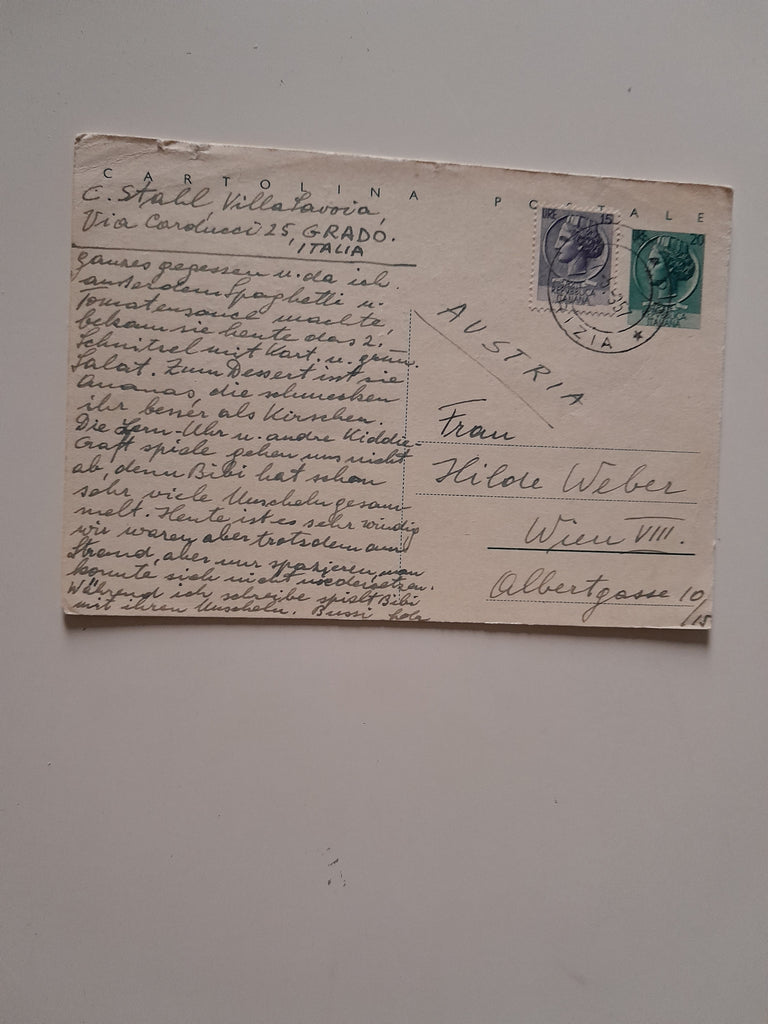 CARTOLINA POSTALE
E. Stahl, Villa Savoia,
Via Carducci 25, GRADO.
ITALIA
ganzes gegessen u. da ich
außerdem Spaghetti u.
Tomatensauce machte,
bekam sie heute das 2.
Schnitzel mit Kart. u. grün.
Salat. Zum Dessert ist sie
Ananas, die schmecken
ihr besser als Kirschen.
Die Lern-Uhr u. andre Kiddie-
Craft spiele gehen uns nicht
ab, denn Bibi hat schon
sehr viele Muscheln gesam
melt. Heute ist es sehr windig
wir waren aber trotzdem am
Strand, aber nur spazieren, man
konnte sich nicht niedersetzen.
Während ich schreibe spielt Bibi
mit ihren Muscheln. Bussi
LIRE 15
REPUBBLICA
ITALIANA
20
ITALIANA
IZIA
AUSTRIA
Frau
Hilde Weber
Wien VIII.
Albertgasse 10/
15